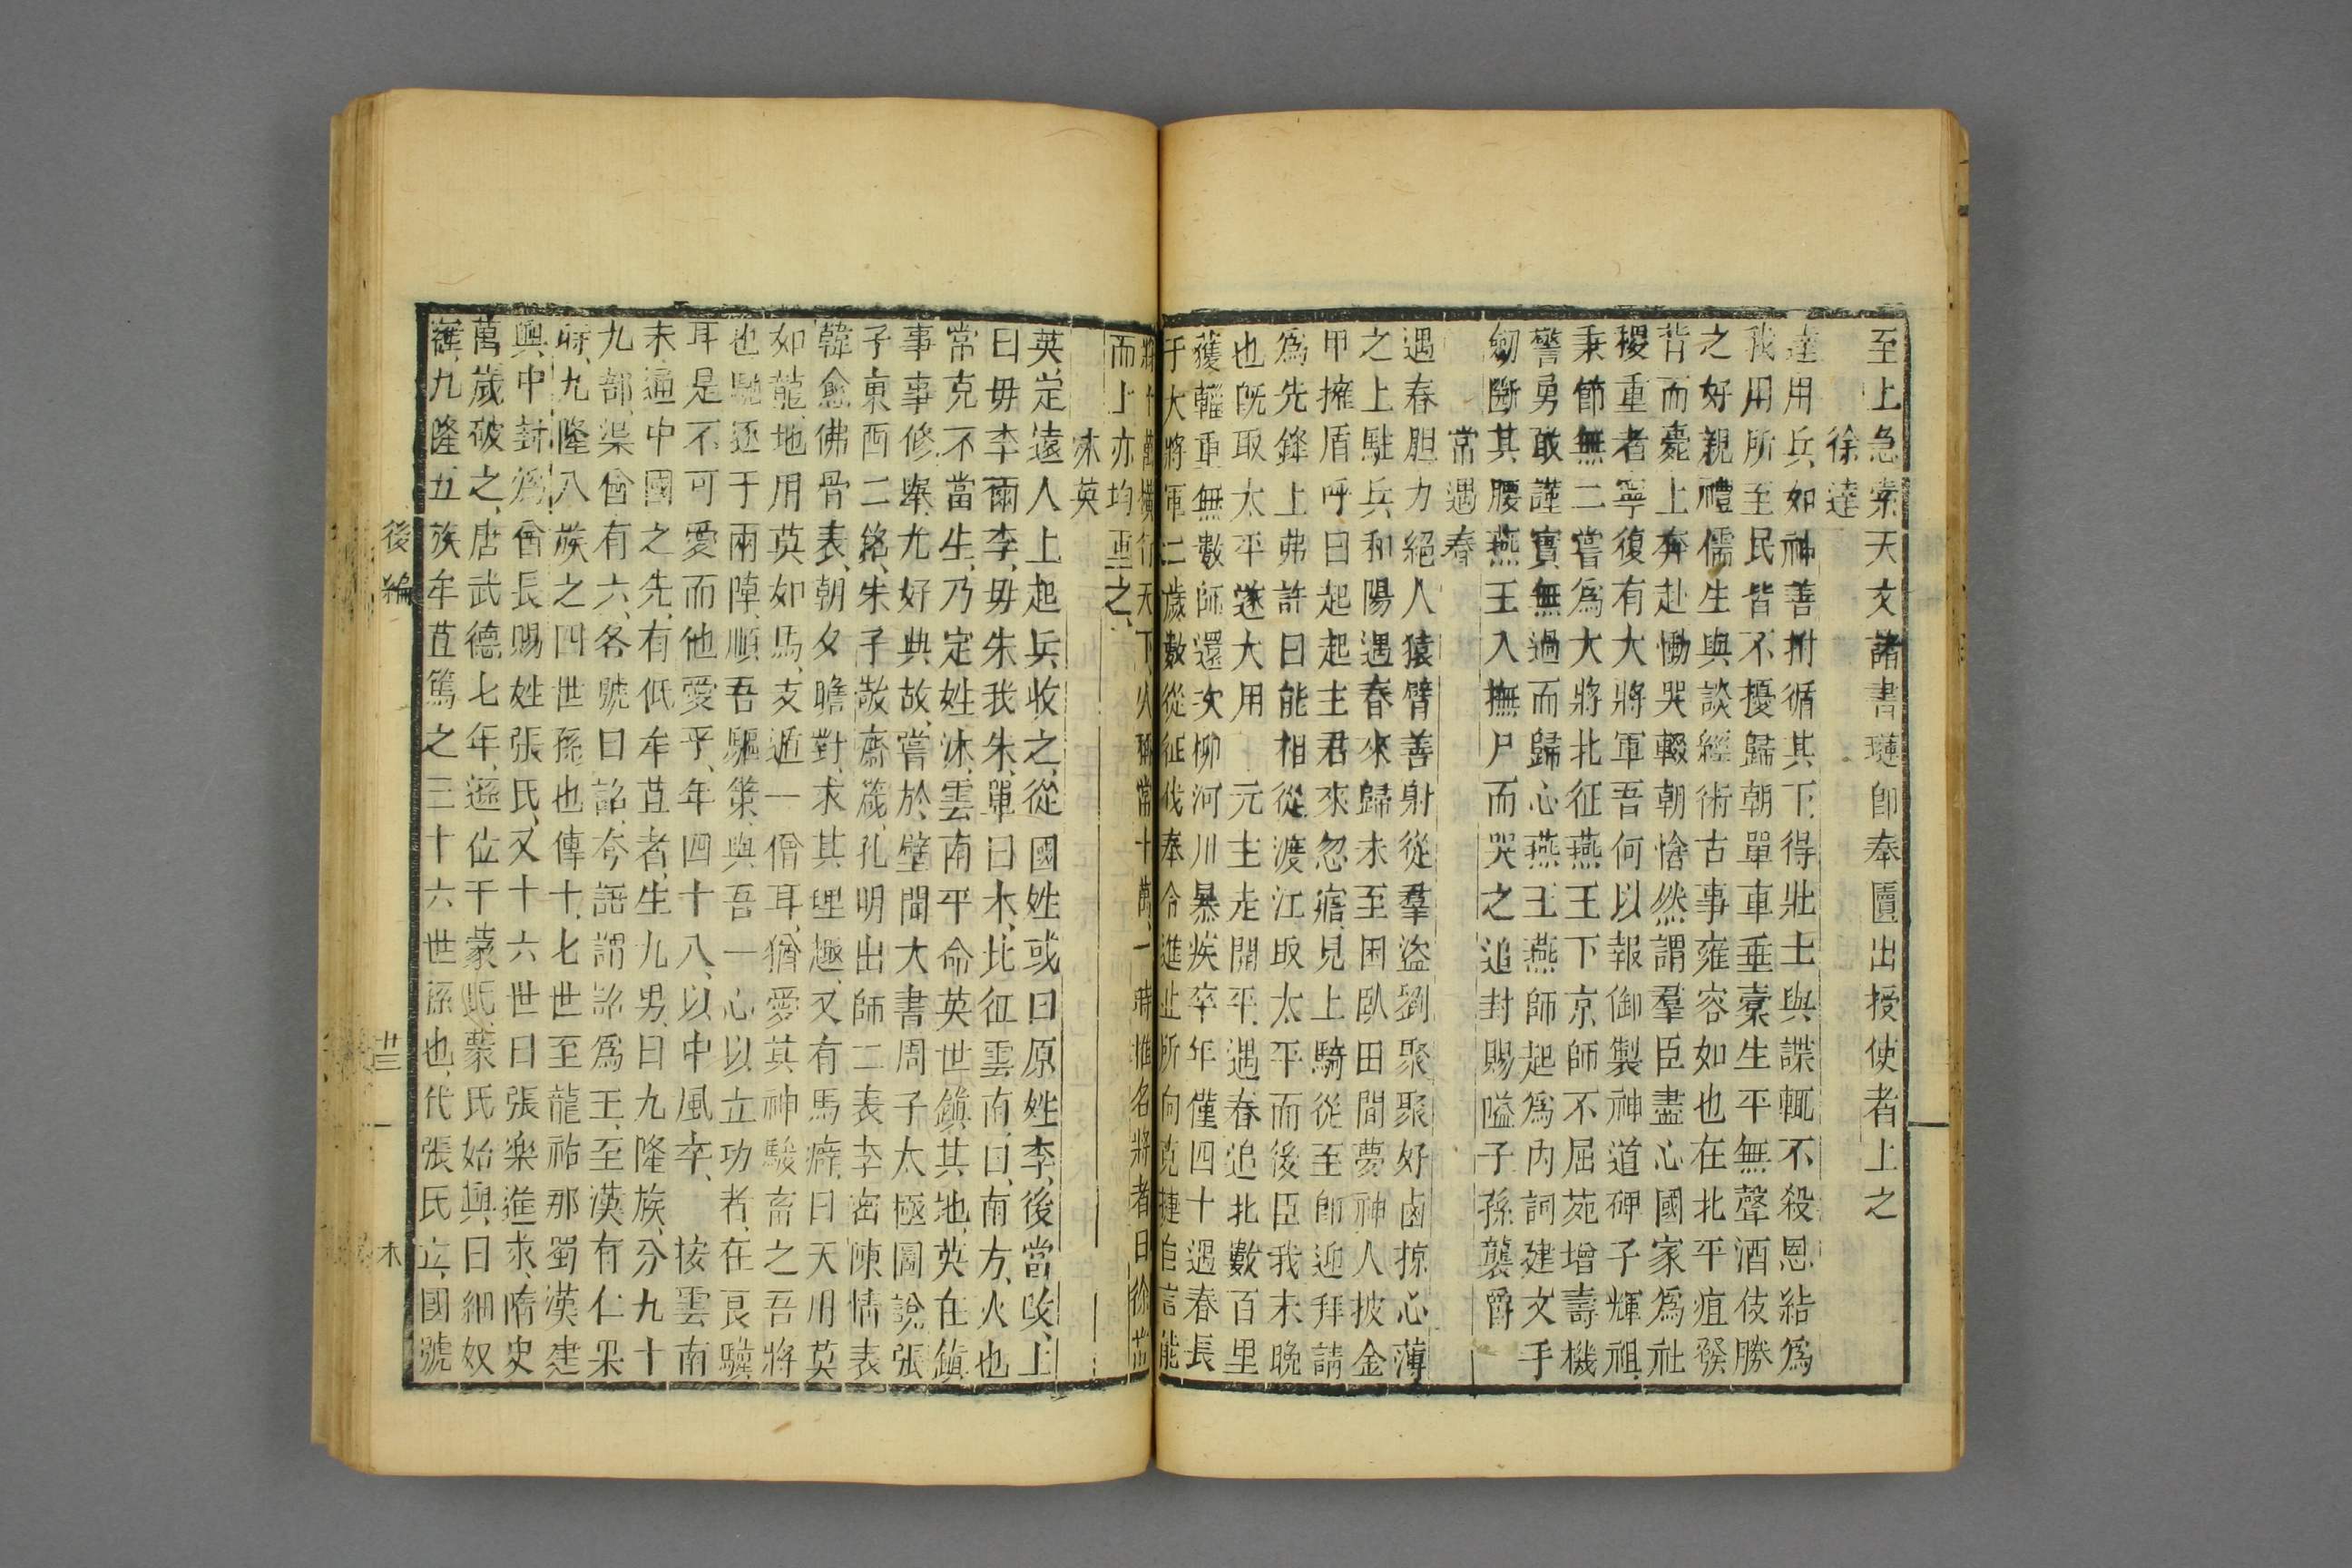 至上急索天文諸書璉卽奉匱出授使者上之
徐達
達用兵如神善拊循其下得壯士與諜輒不殺恩結爲
我用所至民皆不擾歸朝單車垂橐生平無聲酒伎勝
之好親禮儒生與談經術古事雍容如也在北平疽發
背而薨上奔赴慟哭輟朝愴然謂羣臣盡心國家爲社
稷重者寧復有大將軍吾何以報御製神道碑子輝祖
秉節無二嘗爲大將北征燕王下京師不屈苑增壽機
警勇敢謹實無過而歸心燕王燕師起爲內詞建文手
劒斷其腰燕王入撫尸而哭之追封賜謚子孫襲爵
常遇春
遇春胆力絕人猿臂善射從羣盜劉聚聚好鹵掠心薄
之上駐兵和陽遇春來歸未至困臥田間夢神人披金
甲擁盾呼曰起起主君來忽寤見上騎從至卽迎拜請
爲先鋒上弗許曰能相從渡江取太平而後臣我未晚
也旣取太平遂大用 元主走開平遇春追北數百里
獲輜重無數師還次柳河川暴疾卒年僅四十遇春長
于大將軍二歲數從征伐奉令進止所向克捷自言能
將十萬橫行天下人稱常十萬一時推名將者曰徐常
而上亦均重之
沐英
英定遠人上起兵收之從國姓或曰原姓李後當咲上
曰毋李爾李毋朱我朱單曰木比征雲南曰南方火也
常克不當生乃定姓沐雲南平命英世鎮其地英在鎮
事事修舉尤好典故嘗於壁間大書周子太極圖說張
子東西二銘朱子敬齋箴孔明出師二表李密陳情表
韓愈佛骨表朝夕瞻對求其理趣又有馬癖曰天用莫
如龍地用莫如馬支遁一僧耳猶愛其神駿畜之吾將
也馳逐于兩陣順吾驅策與吾一心以立功者在良驥
耳是不可愛而他愛乎年四十八以中風卒 按雲南
未通中國之先有低牟苴者生九男曰九隆族分九十
九部渠酋有六各號曰詔夸語謂詔爲王至漢有仁果
時九隆八族之四世孫也傳十七世至龍祐那蜀漢建
興中封爲酋長賜姓張氏又十六世曰張樂進求隋史
萬歲破之唐武德七年遜位于蒙氏蒙氏始興曰細奴
羅九隆五族牟苴篤之三十六世孫也代張氏立國號
後編 廿三 木